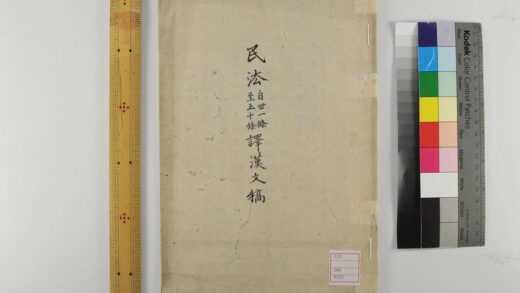 民法自廿一條至五十條譯漢文稿
Kodak
Color Control Patches
Blue
Cyan
Green
Yellow
Red
Magenta
White
Black